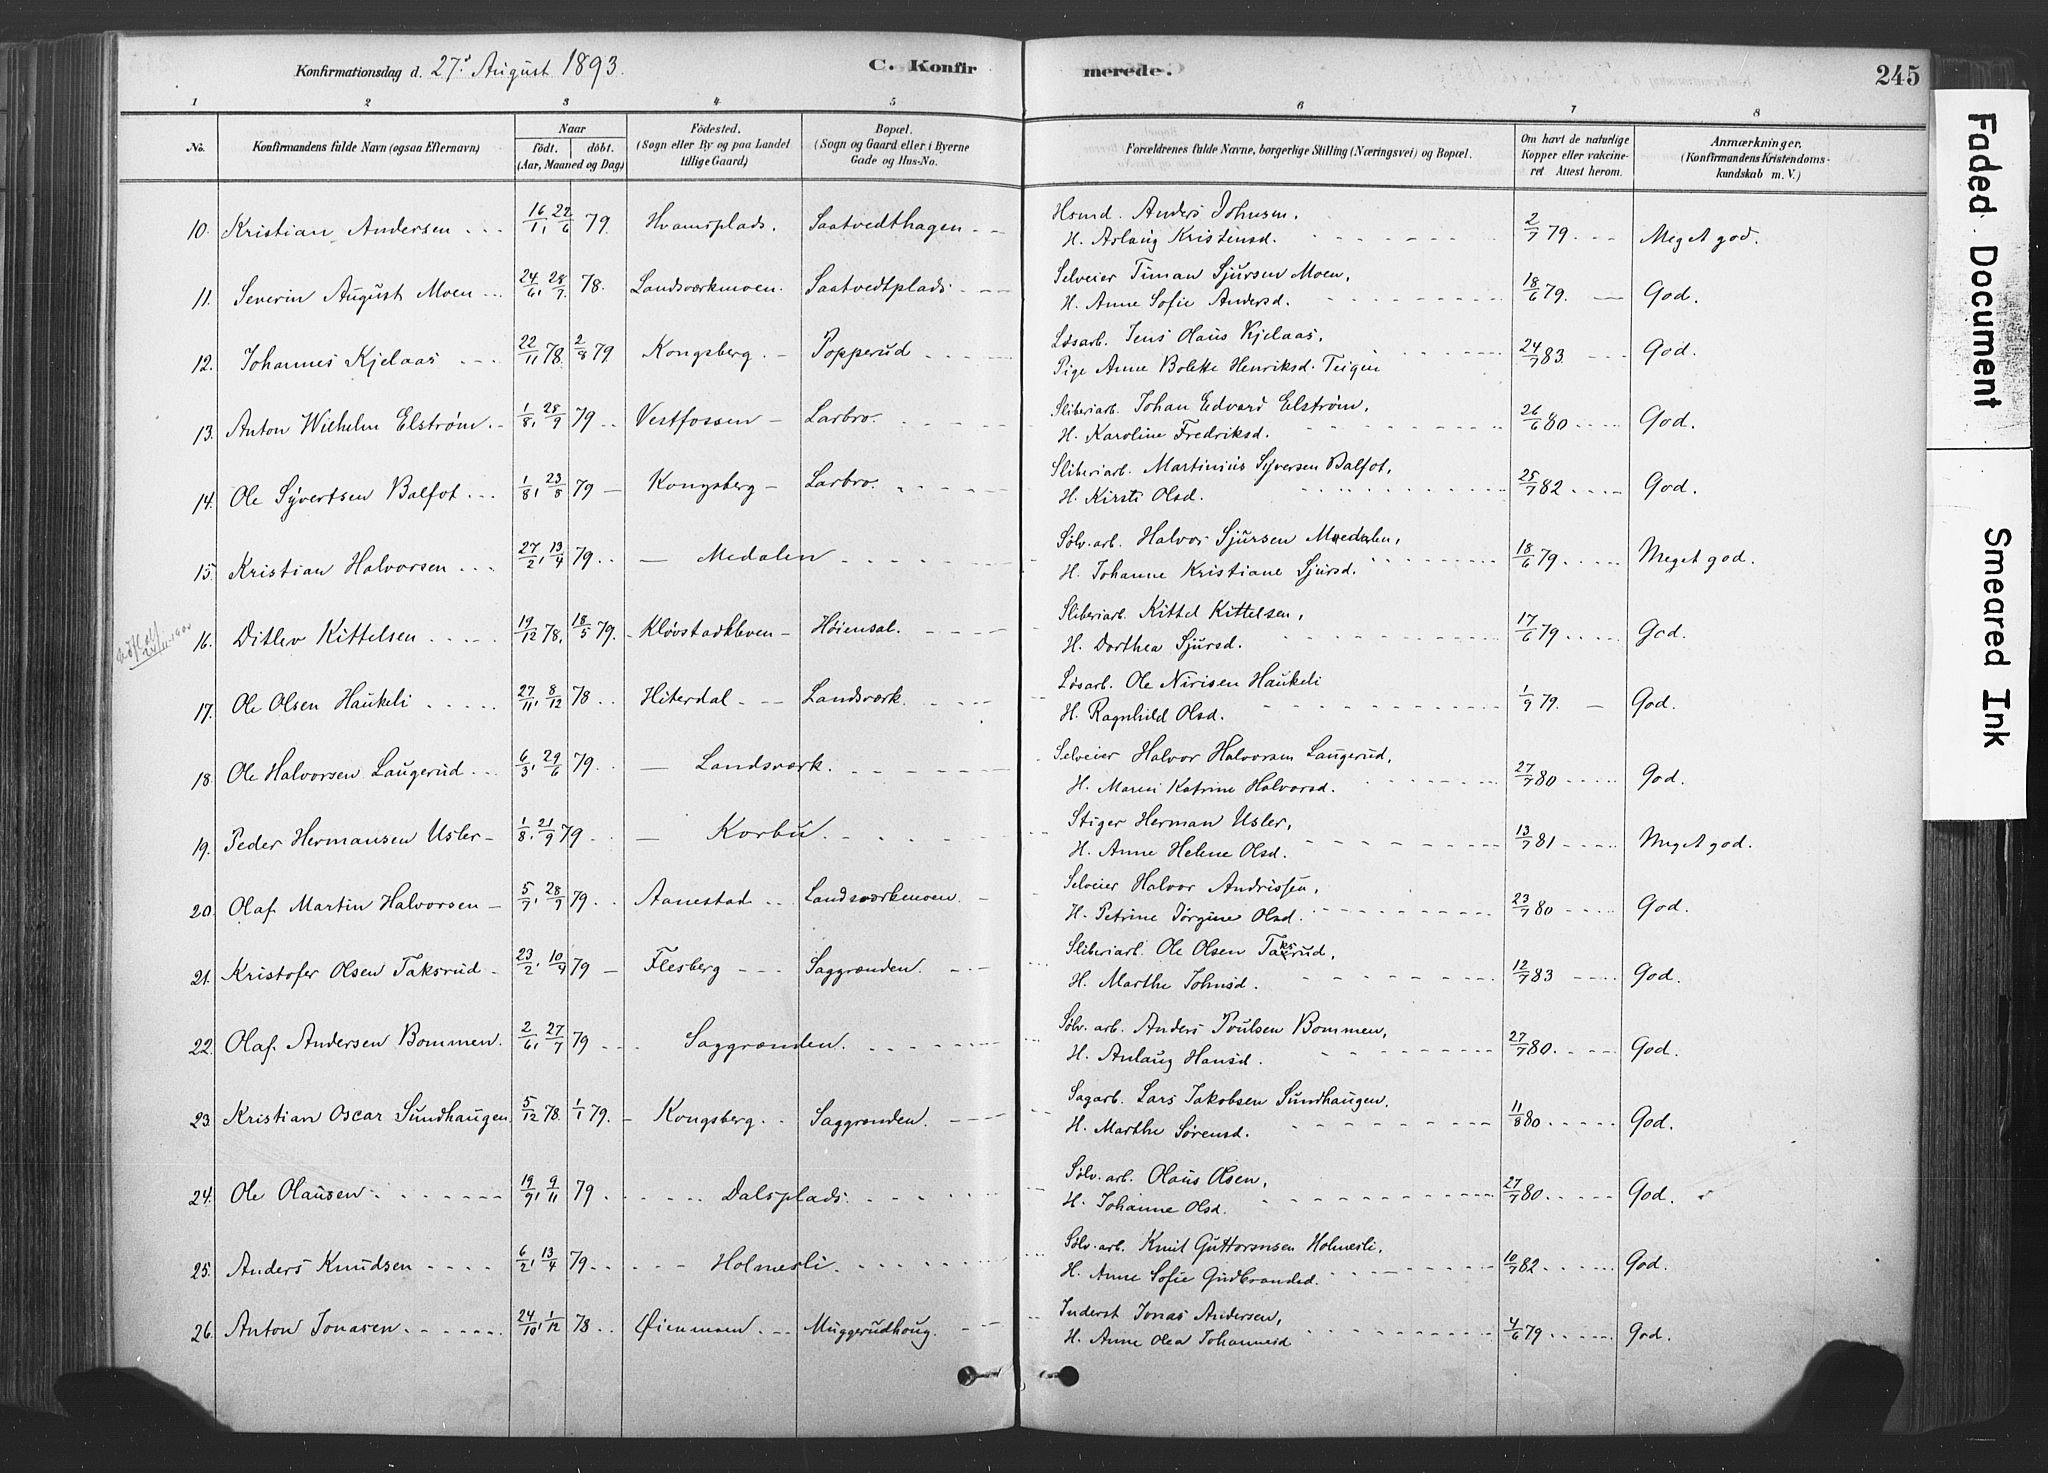 Konfirmationsdag d. 27de August 1893.
C. Konfirmerede.
245
1 2 3 4 5 6 7 8
No.
Konfirmandens fulde Navn (ogsaa Efternavn)
Naar født. døbt. (Aar, Maaned og Dag)
Fødested. (Sogn eller By og paa Landet tillige Gaard)
Bopæl. (Sogn og Gaard eller i Byerne Gade og Hus-No.
Forældrenes fulde Navne, borgerlige Stilling (Næringsvei) og Bopæl.
Om havt de naturlige Kopper eller vakcineret Attest herom.
Anmærkninger. (Konfirmandens Kristendomskundskab m. V.)
10. Kristian Andersen 16/1, 22/6 79. Hvamsplads. Saatvedthagen Hsmd. Anders Johnsen, 2/7 79. Meget god.
H. Aslaug Kristensd.
11. Severin August Moen 24/6, 28/7 78. Landsværkmoen. Saatvedtplads Selveier Timan Sjursen Moen, 18/6 79. God.
H. Anne Sofie Andersd.
12. Johannes Kjelaas 22/11 78. 2/8 79 Kongsberg. Popperud Løsarb. Jens Olaus Kjelaas, 24/7 83. God.
Pige Anne Bolette Henriksd. Teigen
13. Anton Wilhelm Elstrøm 1/8, 28/9 79 Vestfossen Larbro. Sliberiarb. Johan Edvard Elstrøm, 26/6 80 God.
H. Karoline Fredriksd.
14. Ole Syvertsen Balfot 1/8, 23/8 79 Kongsberg Larbro. Sliberiarb. Martinius Syversen Balfot, 25/7 82 God.
H. Kirsti Olsd.
15. Kristian Halvorsen 27/2, 13/4 79 Medalen Sølv.arb. Halvor Sjursen Medalen, 18/6 79 Meget god.
H. Johanne Kristiane Sjursd.
16. Ditlev Kittelsen 19/12 78, 18/5 79. Kløvstadkleven Høiensal. Sliberiarb. Kittel Kittelsen, 17/6 79 God.
H. Dorthea Sjursd.
17. Ole Olsen Haukeli 27/11, 8/12 78 Hiterdal Landsværk. Løsarb. Ole Nirisen Haukeli 1/9 79. God.
H. Ragnhild Olsd.
18. Ole Halvorsen Laugerud 6/3, 29/6 79 Landsværk. Selveier Halvor Halvorsen Laugerud, 27/7 80 God.
H. Maren Katrine Halvorsd.
19. Peder Hermansen Usler 1/8, 21/9 79 Korbu. Stiger Herman Usler, 13/7 81 Meget god.
H. Anne Helene Olsd.
20. Olaf Martin Halvorsen 5/7, 28/9 79 Aanestad Landsværkmoen. Selveier Halvor Andrissen, 23/7 80 God.
H. Petrine Jørgine Olsd.
21. Kristofer Olsen Taksrud 23/2, 10/4 79 Flesberg Saggrænden. Sliberiarb. Ole Olsen Taksrud, 12/7 83 God.
H. Marthe Johnsd.
22. Olaf Andersen Bommen. 2/6, 27/7 79 Saggrænden. Sølv. arb. Anders Poulsen Bommen, 27/7 80. God.
H. Anlaug Hansd.
23. Kristian Oscar Sundhaugen. 5/12 78 1/1 79. Kongsberg Saggrænden. Sagarb. Lars Jakobsen Sundhaugen. 11/8 80 God.
H. Marthe Sørensd.
24. Ole Olausen 19/9, 9/11 79 Dalsplads. Sølv.arb. Olaus Olsen, 27/7 80 God.
H. Johanne Olsd.
25. Anders Knudsen 6/2, 13/4 79 Holmesli. Sølv.arb. Knut Guttormsen Holmesli, 10/7 82 God.
H. Anne Sofie Gudbrandsd.
26. Anton Jonasen 24/10, 1/12 78 Øienmoen Muggerudhoug. Inderst Jonas Andersen, 4/6 79 God.
H. Anne Olea Johannesd
Faded Document
Smeared Ink